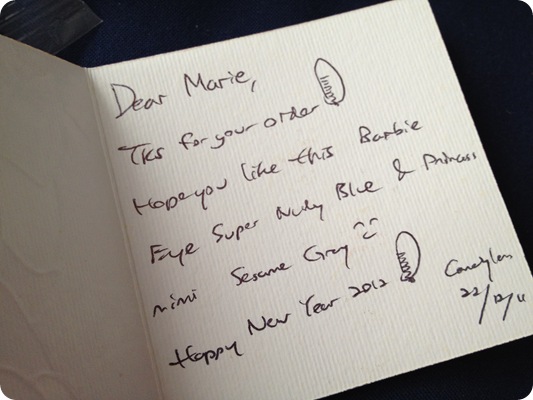 Dear Marie,
Tks for your order
Hope you like this Barbie
Eye Super Nudy Blue & Princess
mimi Sesame Gray
Happy New Year 2012
Candylens
22/12/11